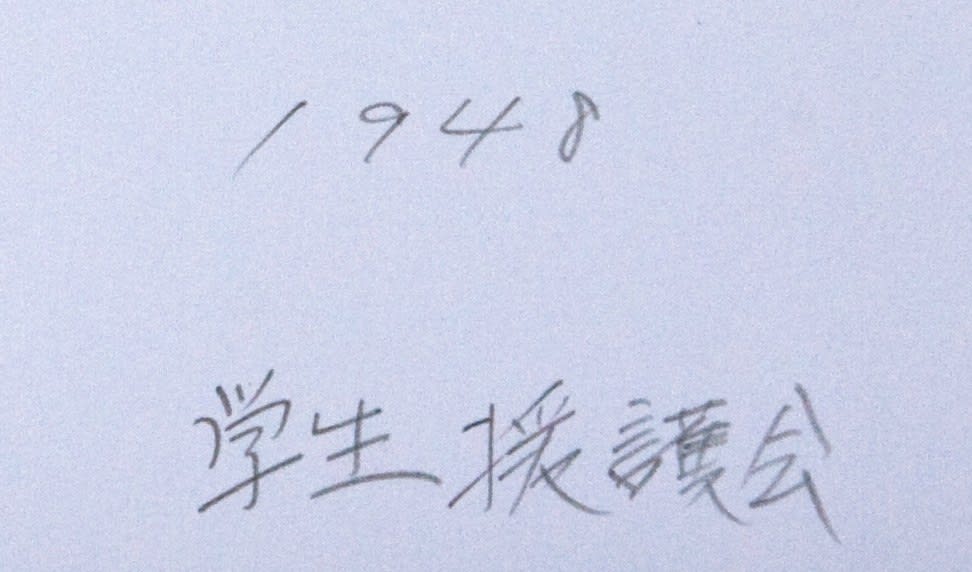 1948
学生援護会